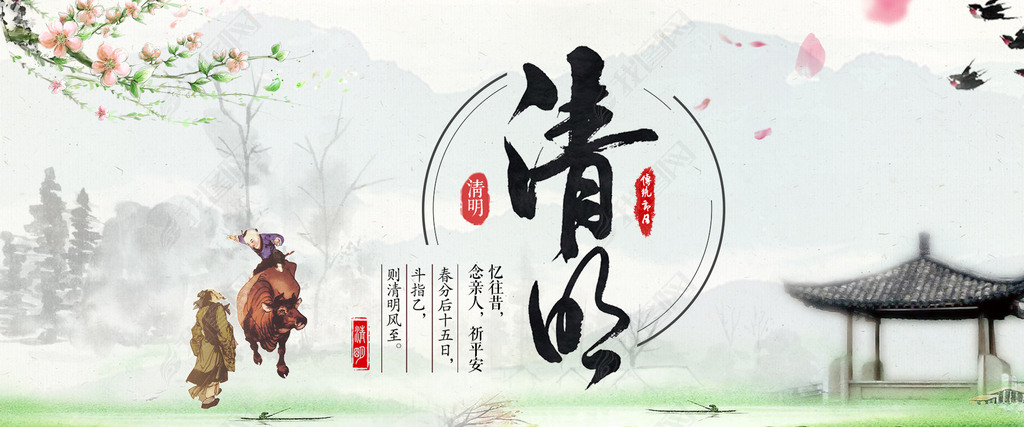 清明
清明
传统节日
忆往昔，
念亲人，祈平安
春分后十五日，
斗指乙，
则清明风至。
清明